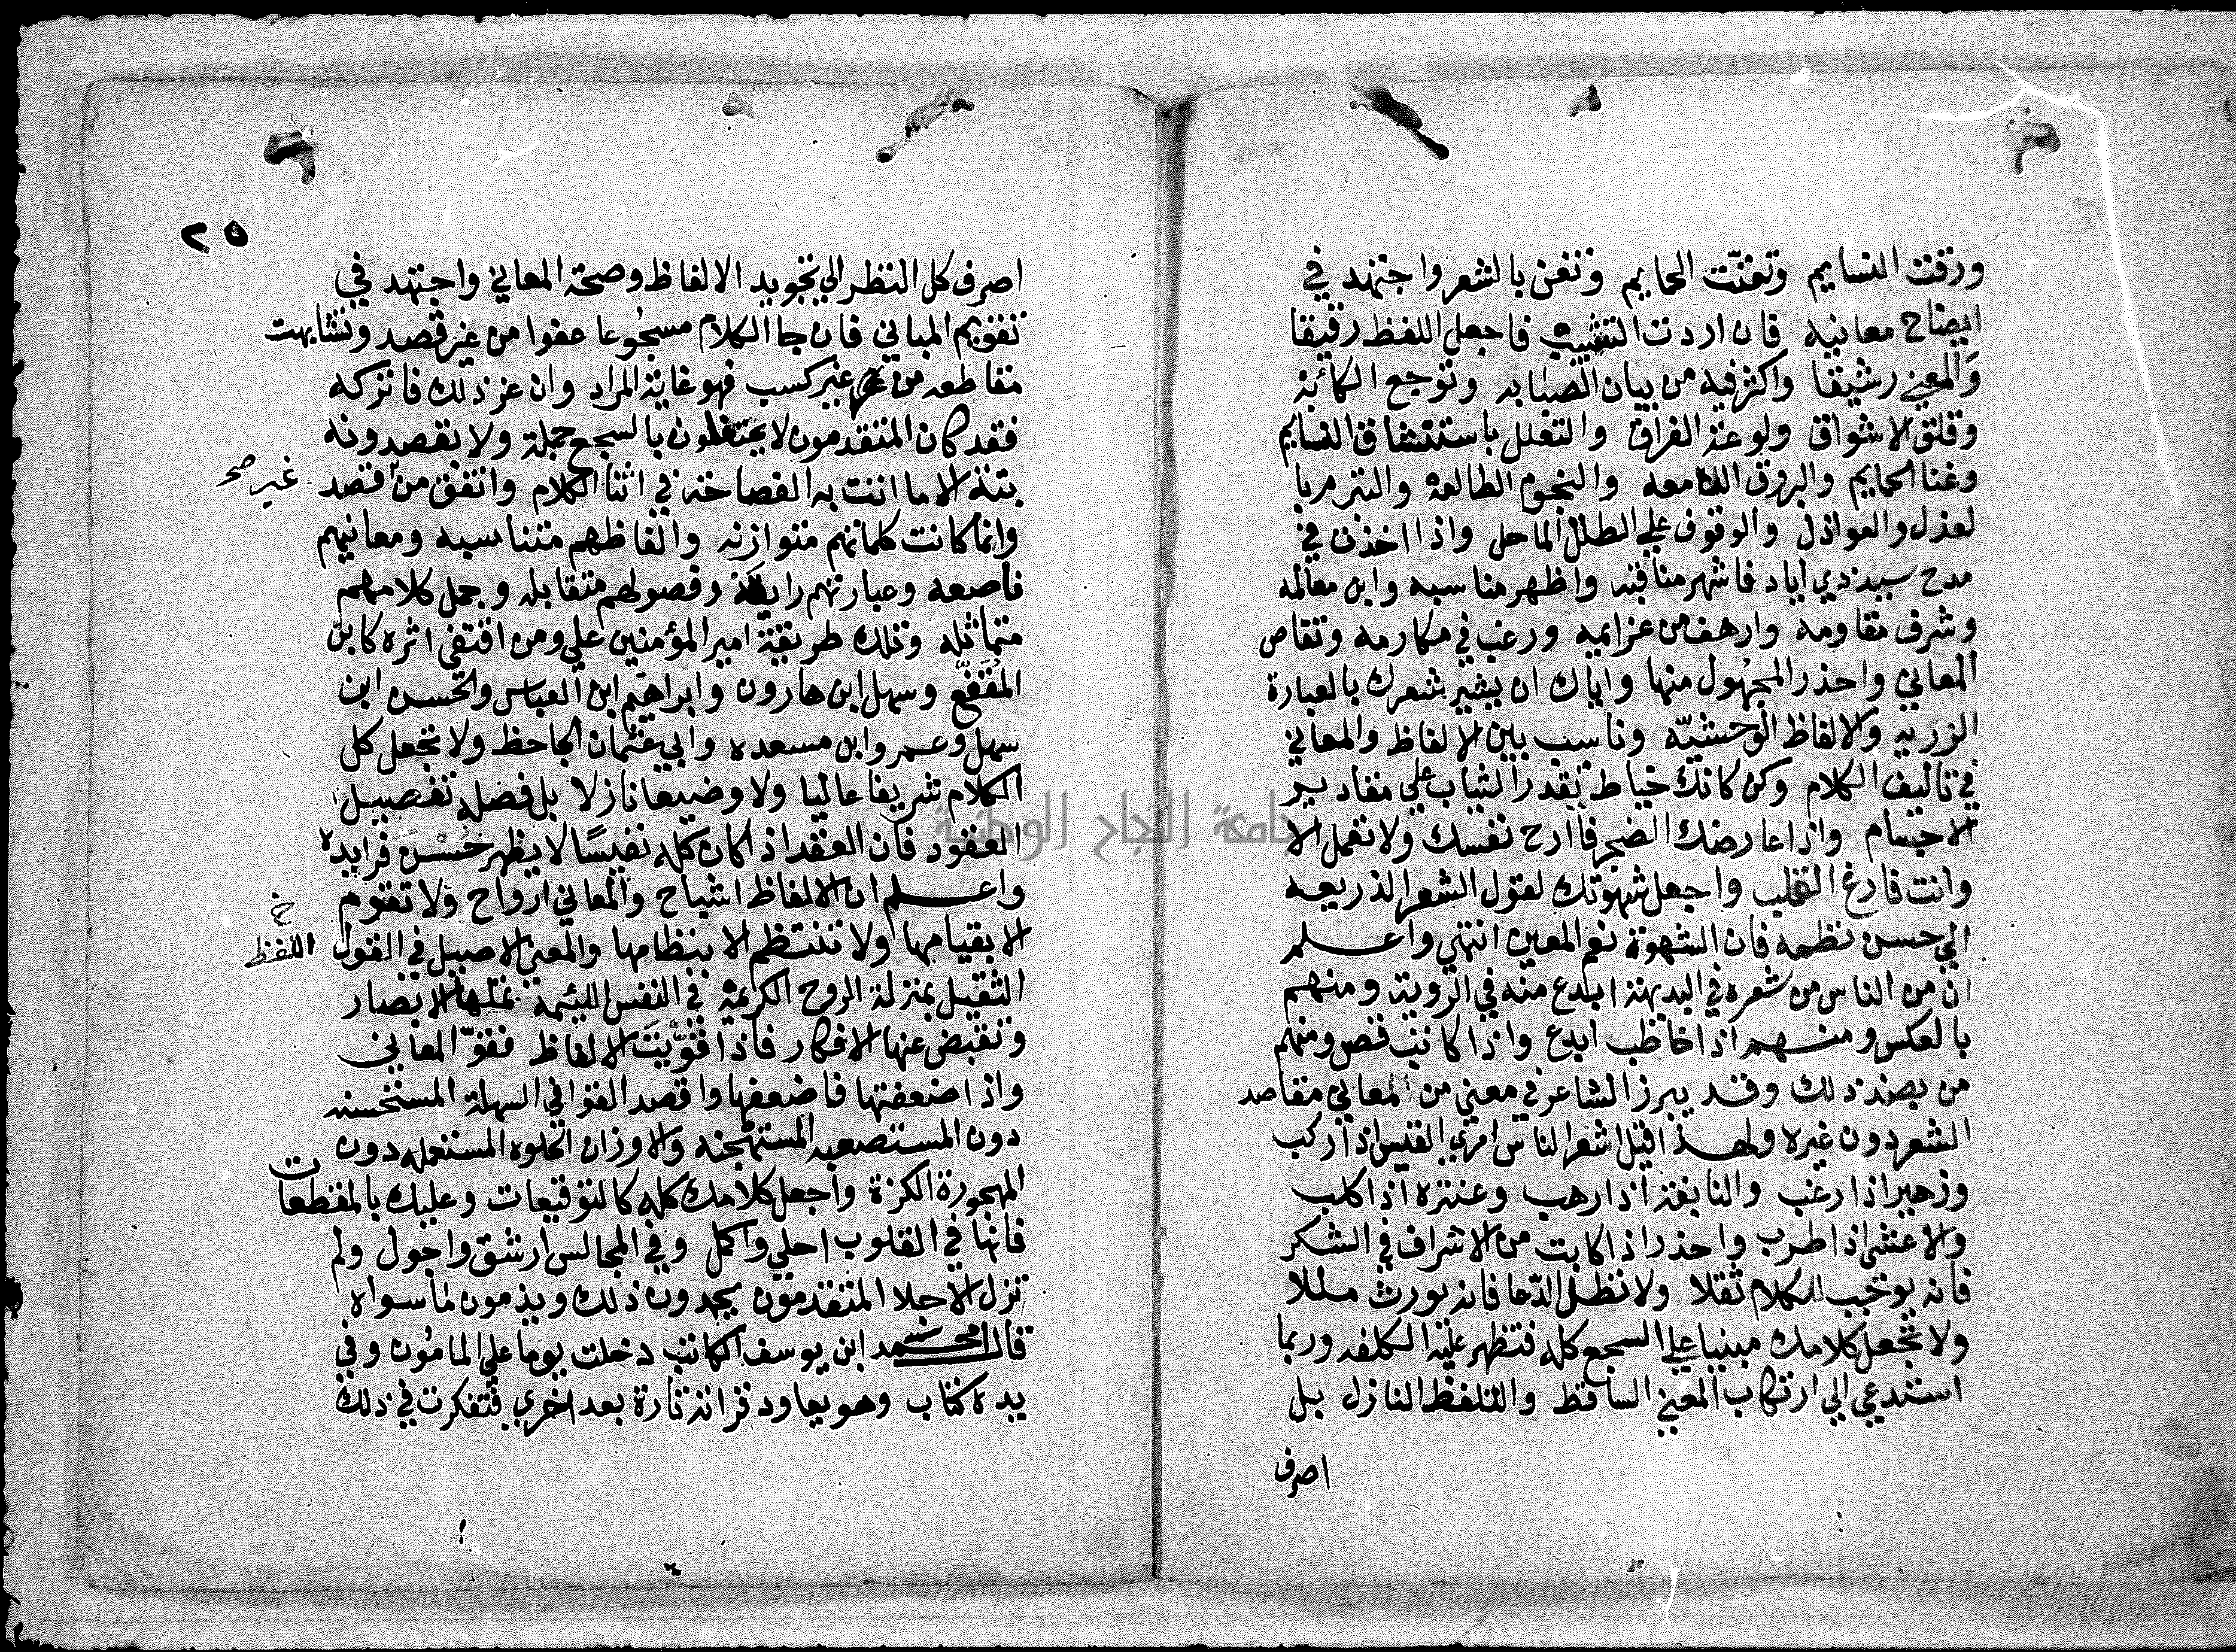 ورقت النسايم وتغنّت الحمايم وتغن بالشعر واجتهد في
ايضاح معانيه فان اردت التشبيب فاجعل اللفظ رقيقا
والمعني رشيقا واكثر فيه من بيان الصبابه وتوجع الكابة
وقلق الاشواق ولوعة الفراق والتعلل باستنشاق النسايم
وغنا الحمايم والبروق اللامعه والنجوم الطالعة والتبرم با
لعذل والعواذل والوقوف علي الطلل الماحل واذا اخذت في
مدح سيد ذي اياد فاشهر مناقبه واظهر مناسبه وابن معالمه
وشرف مقاومه وارهف من عزايمه ورغب في مكارمه وتقاص
المعاني واحذر المجهُول منها واياك ان يشير شعرك بالعبارة
الزريه والالفاظ الوحشيّه وناسب بين الالفاظ والمعاني
في تاليف الكلام وكن كانك خياط يقدر الثياب علي مقادير
الاجسام واذا عارضك الضجر فاارح نفسك ولا تعمل الا
وانت فارغ القلب واجعل شهوتك لقول الشعر الذريعه
الي حسن نظمه فان الشهوة نعم المعين انتهي واعلم
ان من الناس من شعره في البديهة ابدع منه في الروية ومنهم
بالعكس ومنهم اذا خاطب ابدع واذا كاتب قصر ومنهم
من بضد ذلك وقد يبرز الشاعر في معني من المعاني مقاصد
الشعر دون غيره ولهذا قيل اشعر الناس امري القيس اذا ركب
وزهير اذا رغب والنابغة اذا رهب وعنتره اذا كلب
والاعشي اذا طرب واحذر اذا كاتبت من الاشراف في الشكر
فانه يوجب للكلام ثقلا ولا تطل الدّعا فانه يورث مللا
ولا تجعل كلامك مبنيا علي السجع كله فتظهر عليه الكلفه وربما
استدعي الي ارتكاب المعني الساقط واللفظ النازل بل
اصرف
٢٥
اصرف كل النظر الي تجويد الالفاظ وصحة المعاني واجتهد في
تقويم المباني فان جا الكلام مسجُوعا عفوا من غير قصد وتشابهت
مقاطعه من غير كسب فهو غاية المراد وان عز ذلك فاتركه
فقد كان المتقدمون لا يحتفلون بالسجع جملة ولا يقصدونه
بتة الا ما اتت به الفصاحة في اثنا الكلام واتفق من قصد
غير صح
وانما كانت كلماتهم متوازنه والفاظهم متناسبه ومعانيهم
ناصعه وعبارتهم رايقة وفصولهم متقابله وجمل كلامهم
متماثله وتلك طريقة امير المؤمنين علي ومن اقتفي اثره كابن
المقفّع وسهل ابن هارون وابراهيم ابن العباس والحسن ابن
سهل وعمر وابن مسعده وابي عثمان الجاحظ ولا تجعل كل
الكلام شريفا عاليا ولا وضيعا نازلا بل فصله تفصيل
العقود فان العقد اذا كان كله نفيسًا لا يظهر حُسن فرايده
واعلم ان الالفاظ اشباح والمعاني ارواح ولا تقوم
الا بقيامها ولا تنتظم الا بنظامها والمعني الاصيل في القول
خ
اللفظ
الثقيل بمنزلة الروح الكريمة في النفس اللئيمة تملها الابصار
وتقبض عنها الافكار فاذا قوّيتَ الالفاظ فقوّ المعاني
واذا ضعفتها فاضعفها واقصد القوافي السهلة المستحسنه
دون المستصعبه المستهجنه والاوزان الحلوه المستعمله دون
المهجورة الكزة واجعل كلامك كله كالتوقيعات وعليك بالمقطعات
فانها في القلوب احلي واكمل وفي المجالس ارشق واجول ولم
تزل الاجلا المتقدمون يحمدون ذلك ويذمون لما سواه
قال محمد ابن يوسف الكاتب دخلت يوما علي المامُون وفي
يده كتاب وهو يعاود قراته تارة بعد اخري فتفكرت في ذلك
جامعة النجاح الوطنية